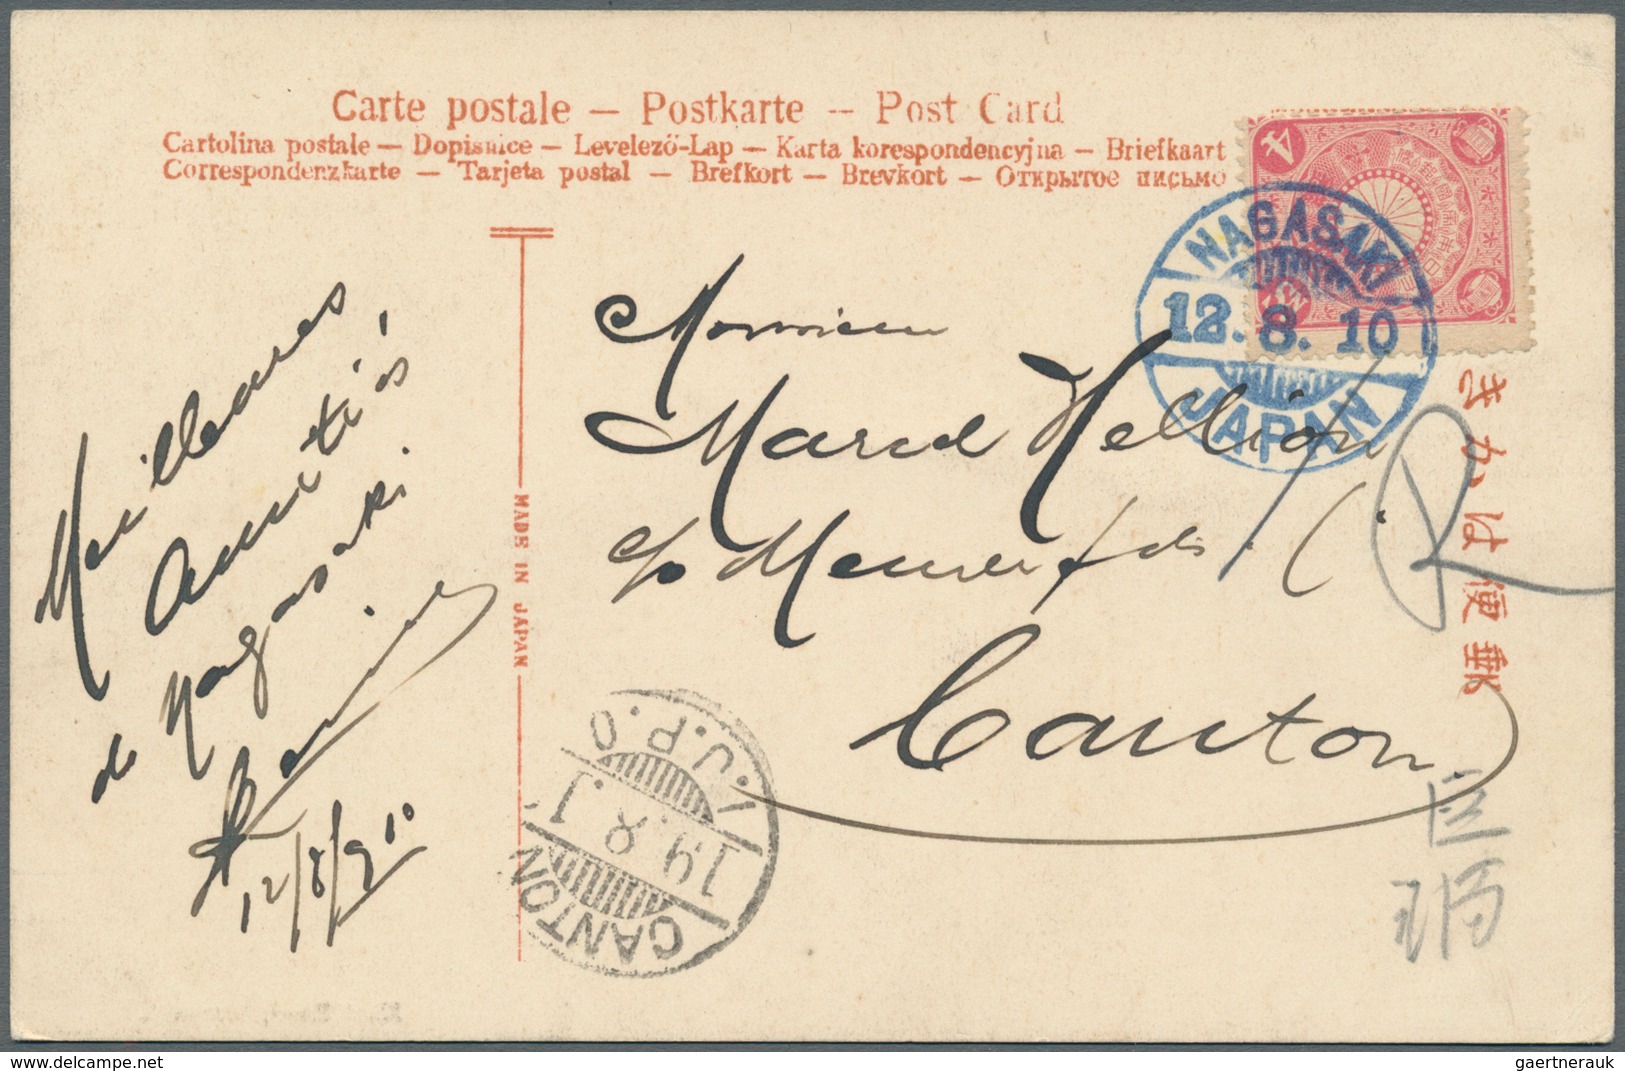 Carte postale — Postkarte — Post Card
Cartolina postale — Dopisnice — Levelező-Lap — Karta korespondencyjna — Briefkaart
Correspondenzkarte — Tarjeta postal — Brefkort — Brevkort — Открытое письмо
NAGASAKI
12.8.10
JAPAN
4
郵便はかき
MADE IN JAPAN
Meilleures
amitiés
de Nagasaki
12/8/910
Monsieur
Marcel
c/o
Canton
R
I.J.P.O
19.8.
CANTON
gaertnerauk